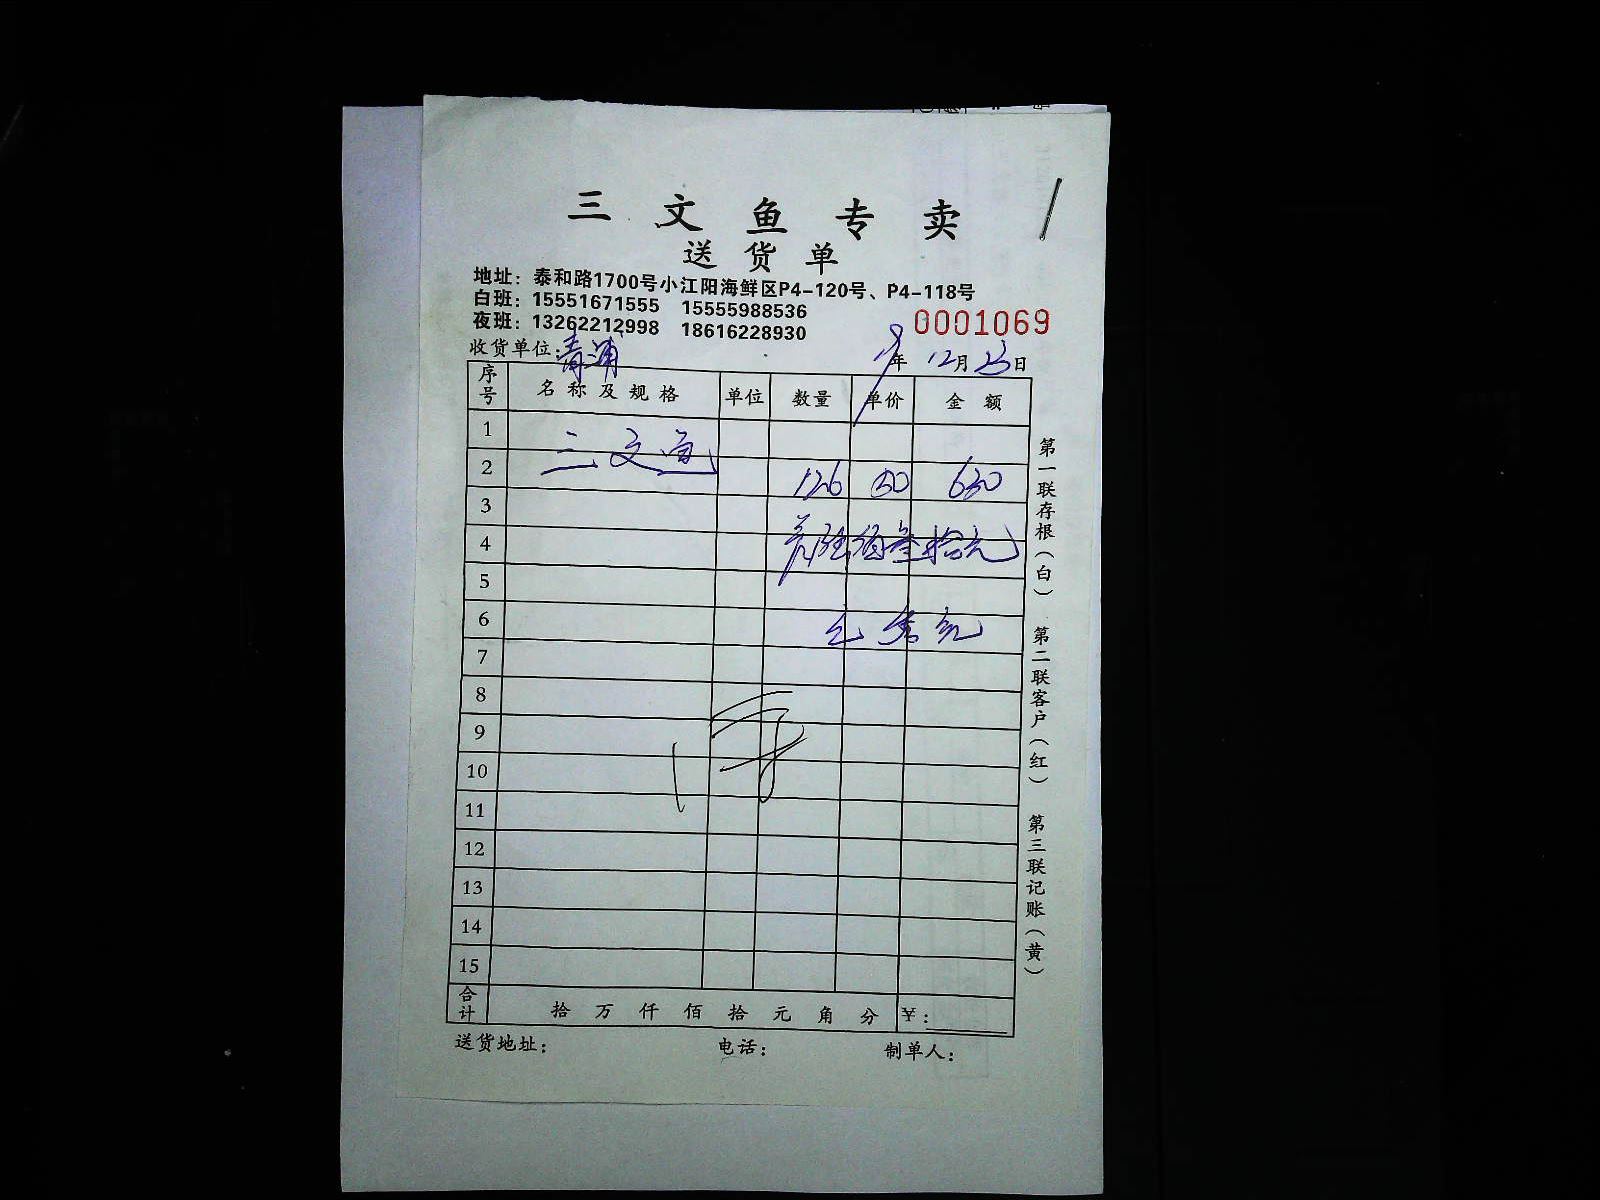 三文鱼专卖
送货单
地址：泰和路1700号小江阳海鲜区P4-120号、P4-118号
白班：15551671555 15555988536
夜班：13262212998 18616228930
0001069
收货单位：青浦 年 12月23日
序号 名称及规格 单位 数量 单价 金额
1
三文鱼
2 126 50 630
3
陆佰叁拾元
4
5
6
7
8
9
10
11
12
13
14
15
合计 拾 万 仟 佰 拾 元 角 分 ￥：
送货地址： 电话： 制单人：
第一联存根（白） 第二联客户（红） 第三联记账（黄）